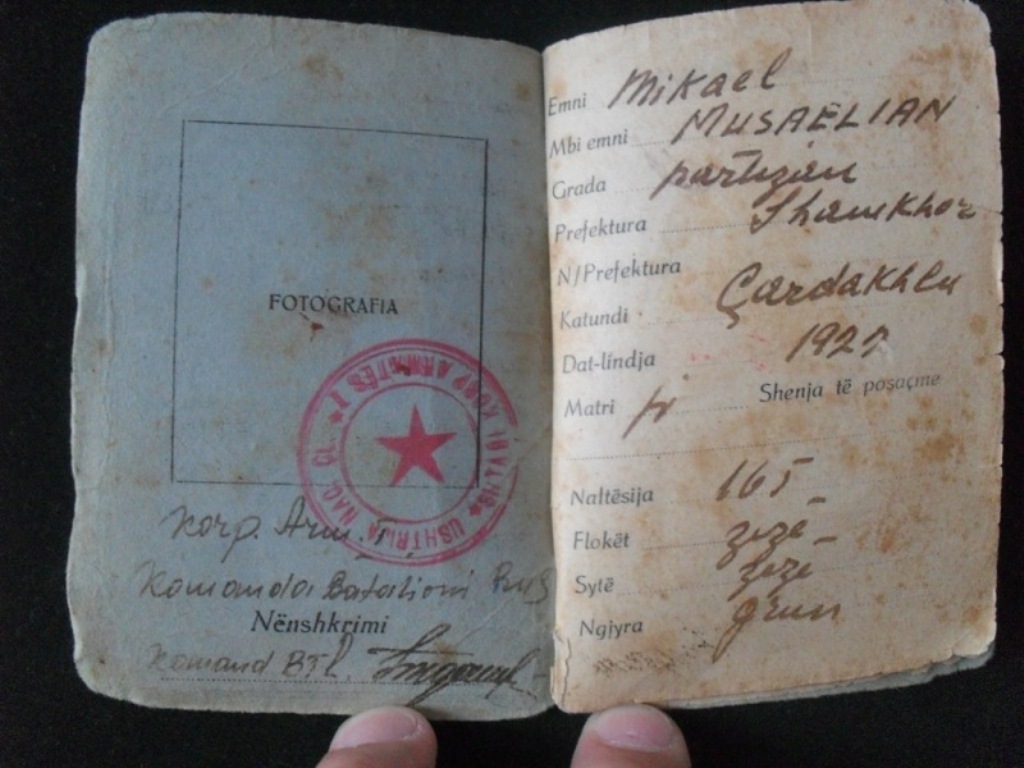 FOTOGRAFIA
USHTRIJA NAÇ. ÇL. ★ SHTABI I KORP ARMATËS I ★
Korp. Arm. I.
Komanda Batalioni Rus
Nënshkrimi
Komand BTL.
Emni Mikael
Mbi emni MUSAELIAN
Grada partizan
Prefektura Shamkhor
N/Prefektura
Katundi Çardakhlu
Dat-lindja 1927
Matri Shenja të posaçme
Naltësija 165
Flokët zezë
Sytë zezë
Ngjyra grun